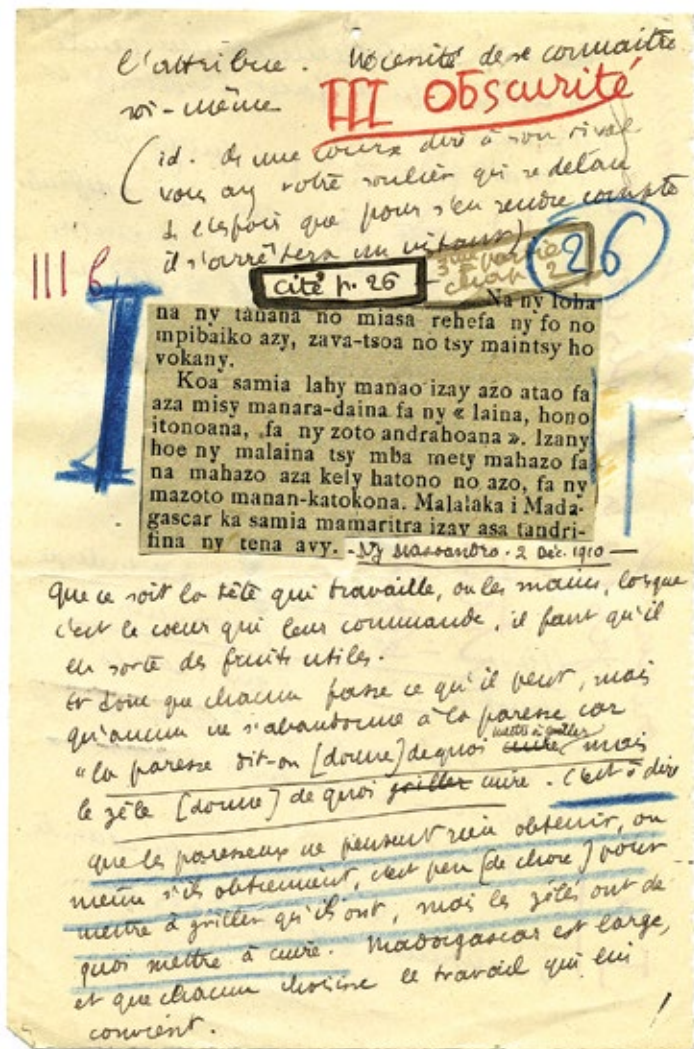 l'attribue. Nécessité de se connaitre
soi-même III Obscurité
(id. ds une course dire à son rival
vous avez votre soulier qui se délace
ds l'espoir que pour s'en rendre compte
il s'arrêtera un instant)
III b cité p. 26 3ème partie chap. 2 26
Na ny loha
na ny tanana no miasa rehefa ny fo no
mpibaiko azy, zava-tsoa no tsy maintsy ho
vokany.
Koa samia lahy manao izay azo atao fa
aza misy manara-daina fa ny « laina, hono
itonoana, fa ny zoto andrahoana ». Izany
hoe ny malaina tsy mba mety mahazo fa
na mahazo aza kely hatono no azo, fa ny
mazoto manan-katokona. Malalaka i Mada-
gascar ka samia mamaritra izay asa tandri-
fina ny tena avy. - Ny Masoandro - 2 Déc. 1910 —
que ce soit la tête qui travaille, ou les mains, lorsque
c'est le coeur qui leur commande, il faut qu'il
en sorte des fruits utiles.
Et donc que chacun fasse ce qu'il peut, mais
qu'aucun ne s'abandonne à la paresse car
mettre à griller
"la paresse dit-on [donne] de quoi cuire mais
le zèle [donne] de quoi griller cuire. C'est à dire
que les paresseux ne peuvent rien obtenir, ou
même s'ils obtiennent, c'est peu [de chose] pour
mettre à griller qu'ils ont, mais les zélés ont de
quoi mettre à cuire. Madagascar est large,
et que chacun choisisse le travail qui lui
convient.